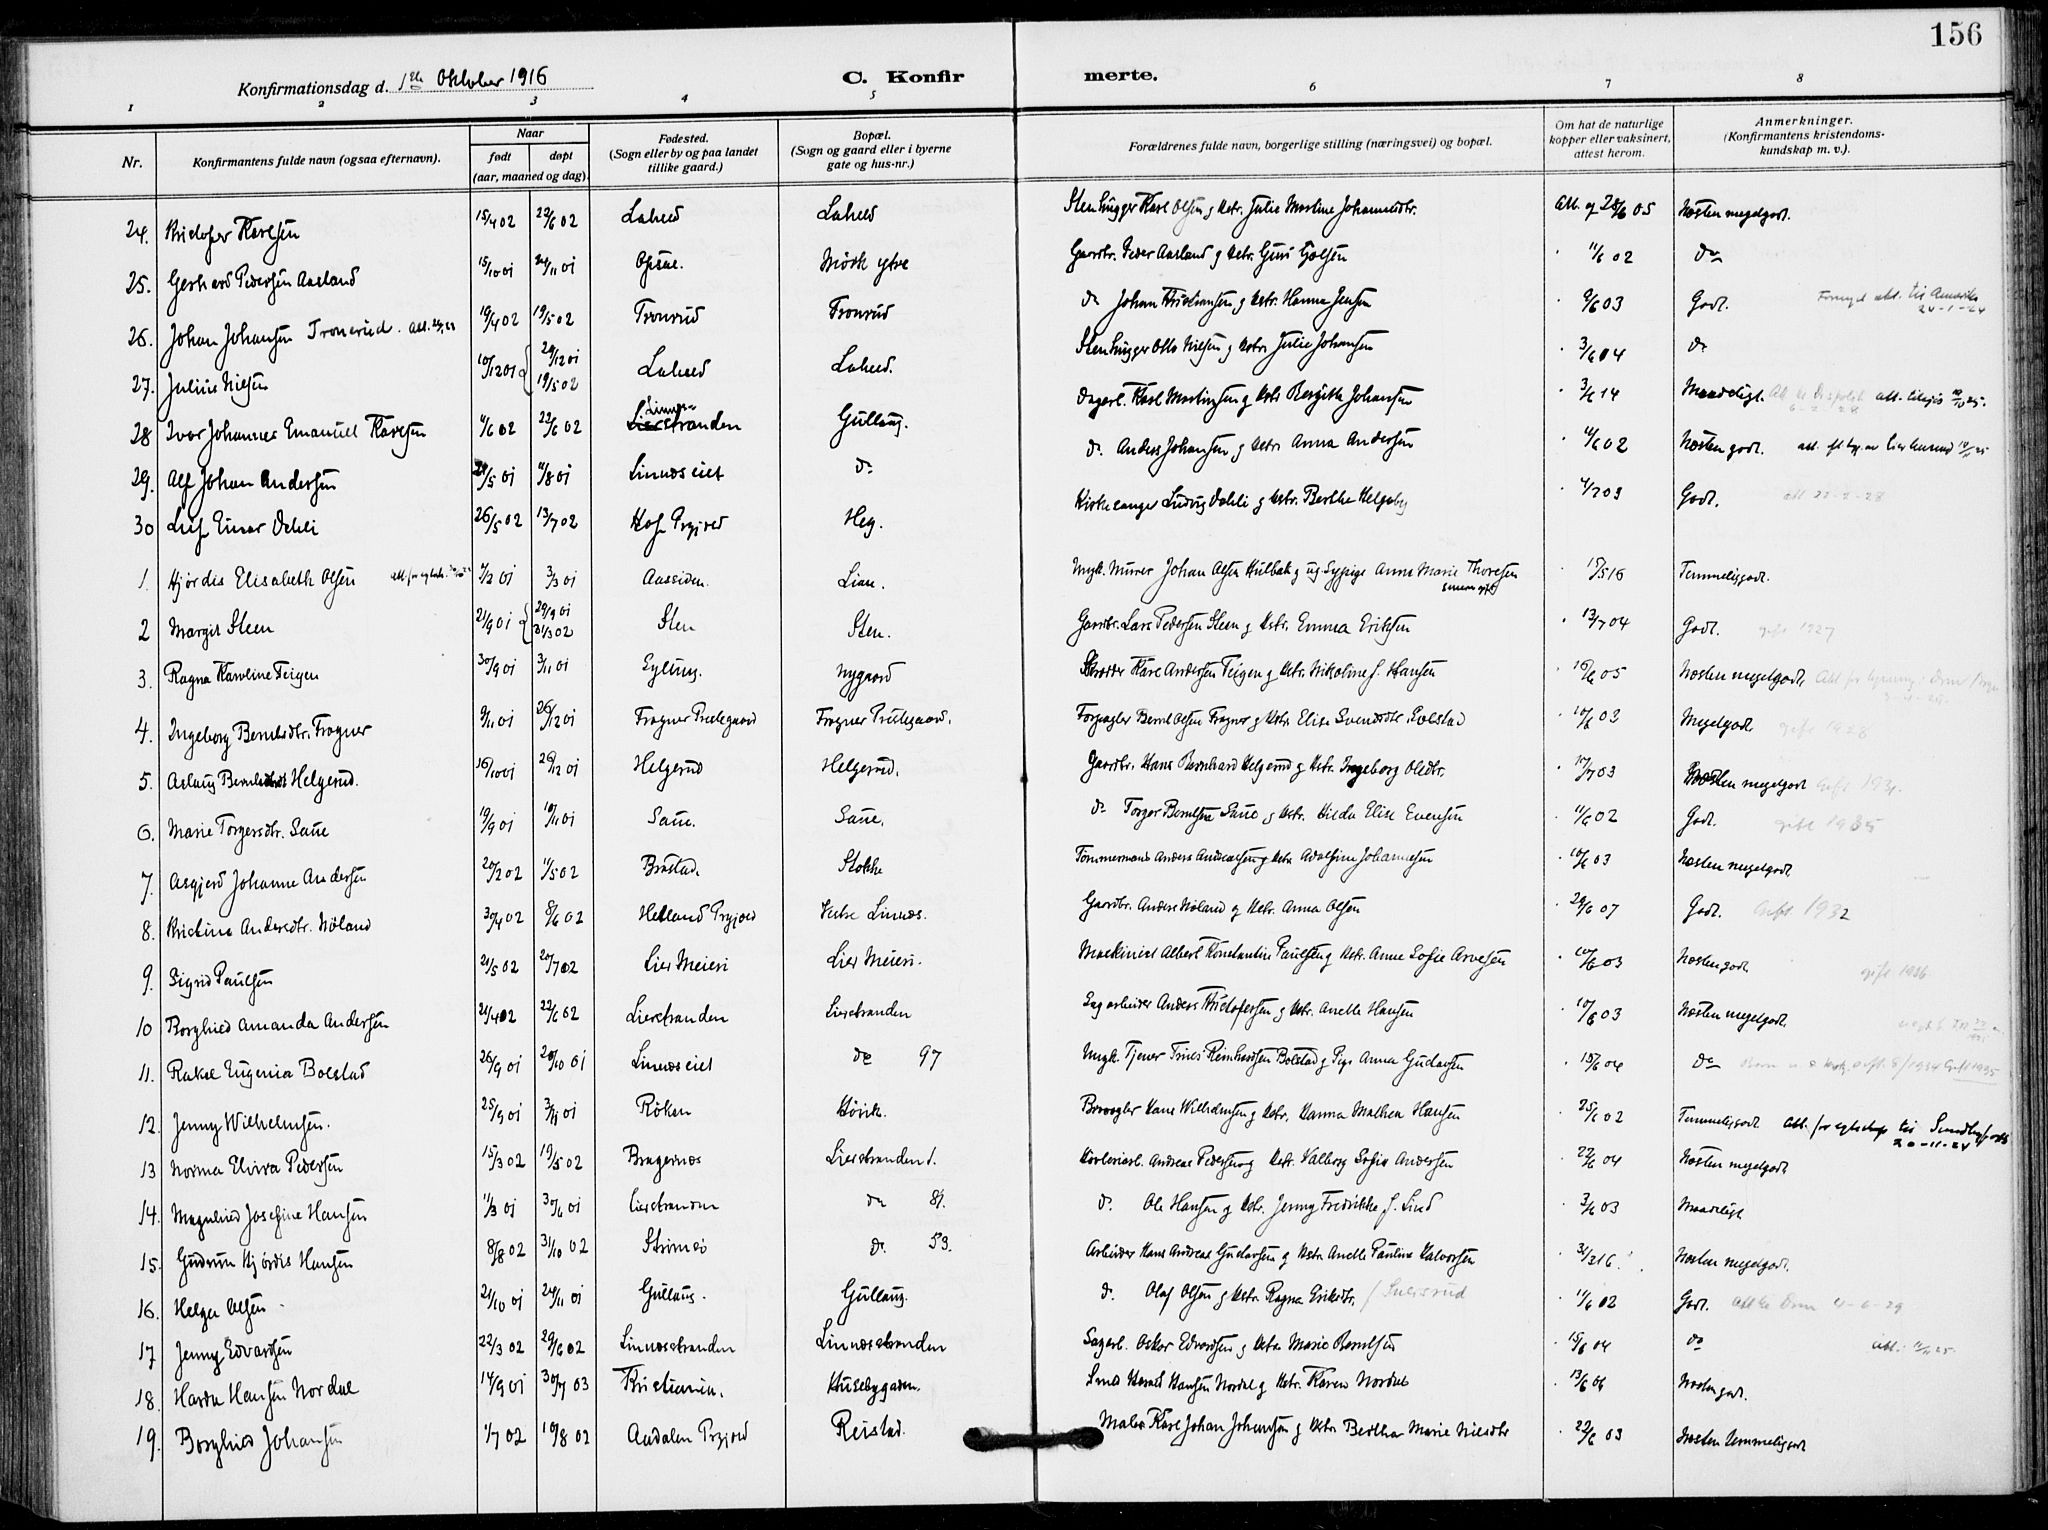 156
Konfirmationsdag d. 1ste Oktober 1916
C. Konfirmerte.
1 2 3 4 5 6 7 8
Nr. Konfirmantens fulde navn (ogsaa efternavn). Naar født døpt (aar, maaned og dag). Fødested. (Sogn eller by og paa landet tillike gaard.) Bopæl. (Sogn og gaard eller i byerne gate og hus-nr.) Forældrenes fulde navn, borgerlige stilling (næringsvei) og bopæl. Om hat de naturlige kopper eller vaksinert, attest herom. Anmerkninger. (Konfirmantens kristendomskundskap m. v.).
24. Kristofer Karlsen 15/4 02 22/6 02 Lahell Lahell Stenhugger Karl Olsen og Hstr. Julie Martine Johannesdtr. Att. af 28/6 05 Næsten megetgodt.
25. Gerhard Pedersen Aasland 15/10 01 24/11 01 Opsal. Mørk ytre Gaardbr. Peder Aasland og Hstr. Guri 11/6 02 do
26. Johan Johansen Tronerud. 19/4 02 19/5 02 Tronrud Tronrud do Johan Kristiansen og Hstr. Hanna Jensen 9/6 03 Godt. Fornyet att. til Amerika 20-1-24
27. Julius Nilsen 10/12 01 29/12 01 19/5 02 Lahell Lahell. Stenhugger Otto Nilsen og Hstr. Julie Johansen 3/6 04 do
28 Ivar Johannes Emanuel Karlsen 4/6 02 22/6 02 Linnesstranden Gullaug. Dagarb. Karl Martinsen og Hstr Birgitte Johansen 3/6 14 Maadeligt.
29. Alf Johan Andersen 29/5 01 4/8 01 Linneseiet do do Anders Johansen og Hstr. Anna Andersen 11/6 02 Næsten godt.
30 Leif Einar Dahli 26/5 02 13/7 02 Hof Prgjeld Heg. Kirkesanger Ludvig Dahli og Hstr. Berthe Helgeby 4/7 03 Godt. att 22-2-28
1. Hjørdis Elisabeth Olsen 7/2 01 3/3 01 Aassiden. Lian. Ungk. Murer Johan Olsen Hulbak og ug. Sypige Anna Marie Thoresen 15/5 16 Temmeliggodt.
2 Margit Steen 21/9 01 29/9 01 31/3 02 Sten Sten. Gaardbr. Lars Pedersen Steen og Hstr. Emma Eriksen 13/7 04 Godt. gift 1927
3. Ragna Karoline Teigen 30/9 01 3/11 01 Egtung. Nygaard Skrædder Karl Andersen Teigen og Hstr. Nikoline f. Hansen 16/6 05 Næsten megetgodt.
4. Ingeborg Berntsdtr. Frogner 9/11 01 26/12 01 Frogner Prestegaard Frogner Prestegaard. Forpagter Bernt Olsen Frogner og Hstr. Elise Svendsdtr. Bolstad 10/6 03 Megetgodt gift 1928
5. Aslaug Berntsdtr. Helgerud. 16/10 01 26/12 01 Helgerud Helgerud. Gaardbr. Hans Bernhard Helgerud og Hstr. Ingeborg Olsdtr. 17/7 03 Næsten megetgodt
6. Marie Torgersdtr. Saue 19/9 01 10/11 01 Saue. Saue. do Torger Berntsen Saue og Hstr. Hilda Elise Evensen 11/6 02 Godt. gift 1935
7. Asgjerd Johanne Andersen 20/2 02 11/5 02 Brastad. Stokke Tømmermand Anders Andreassen og Hstr. Adolfine Johannesen 10/6 03 Næsten megetgodt.
8. Kristine Andersdtr. Nøland 30/4 02 8/6 02 Hetland Prgjeld Vestre Linnes. Gaardbr. Anders Nøland og Hstr. Anna Olsen 29/6 07 Godt. Gift 1932
9. Sigrid Paulsen 21/5 02 20/7 02 Lier Meieri Lier Meieri. Maskinist Albert Konstantin Paulsen og Hstr. Anne Sofie Arvesen 10/6 03 Næsten godt
10 Borghild Amanda Andersen 21/4 02 22/6 02 Lierstranden Lierstranden Sagarbeider Anders Kristofersen og Hstr. Anette Hansen 10/6 03 Næsten megetgodt.
11. Rakel Eugenia Bolstad 26/9 01 20/10 01 Linneseiet do 97 Ungk. Tjener Trines Reinhardsen Bolstad og Pige Anna Gustavsen 15/6 04 do
12. Jenny Wilhelmsen. 25/9 01 3/11 01 Røken Høvik. Brovogter Hans Wilhelmsen og Hstr. Hanna Mathea Hansen 25/6 02 Temmeliggodt 20-11-24
13 Norma Elvira Pedersen 15/3 02 19/5 02 Bragernes Lierstranden 1. Andreas Pedersen og Hstr. Valborg Sofie Andersen 22/6 04 Næsten megetgodt
14. Magnhild Josefine Hansen 11/3 01 30/6 01 Lierstranden do 81. do Ole Hansen og Hstr. Jenny Fredrikke f. Lind 3/6 03 Maadeligt
15. Gudrun Hjørdis Hansen 8/8 02 31/10 02 Strømsø do 53. Arbeider Hans Andreas Gustavsen og Hstr. Anette Pauline Halvorsen 31/3 16. Næsten megetgodt.
16. Helga Olsen 21/10 01 24/11 01 Gullaug. Gullaug. do Olaf Olsen og Hstr. Ragna Eriksdtr. 11/6 02 Godt. 4-6-29
17 Jenny Edvardsen 22/3 02 29/6 02 Linnesstranden Linnesstranden Sagarb. Oskar Edvardsen og Hstr. Marie Berntsen 15/6 04 do
18. Hansen Nordal 14/9 01 30/7 03 Kristiania. Husebygaden. Hansen Nordal og Hstr. Karen Nordal 13/6 Næsten godt.
19. Borghild Johansen 1/7 02 10/8 02 Aadalen Prgjeld Reistad. Maler Karl Johan Johansen og Hstr Berthea Marie Nilsdtr 22/6 03 Næsten temmeliggodt